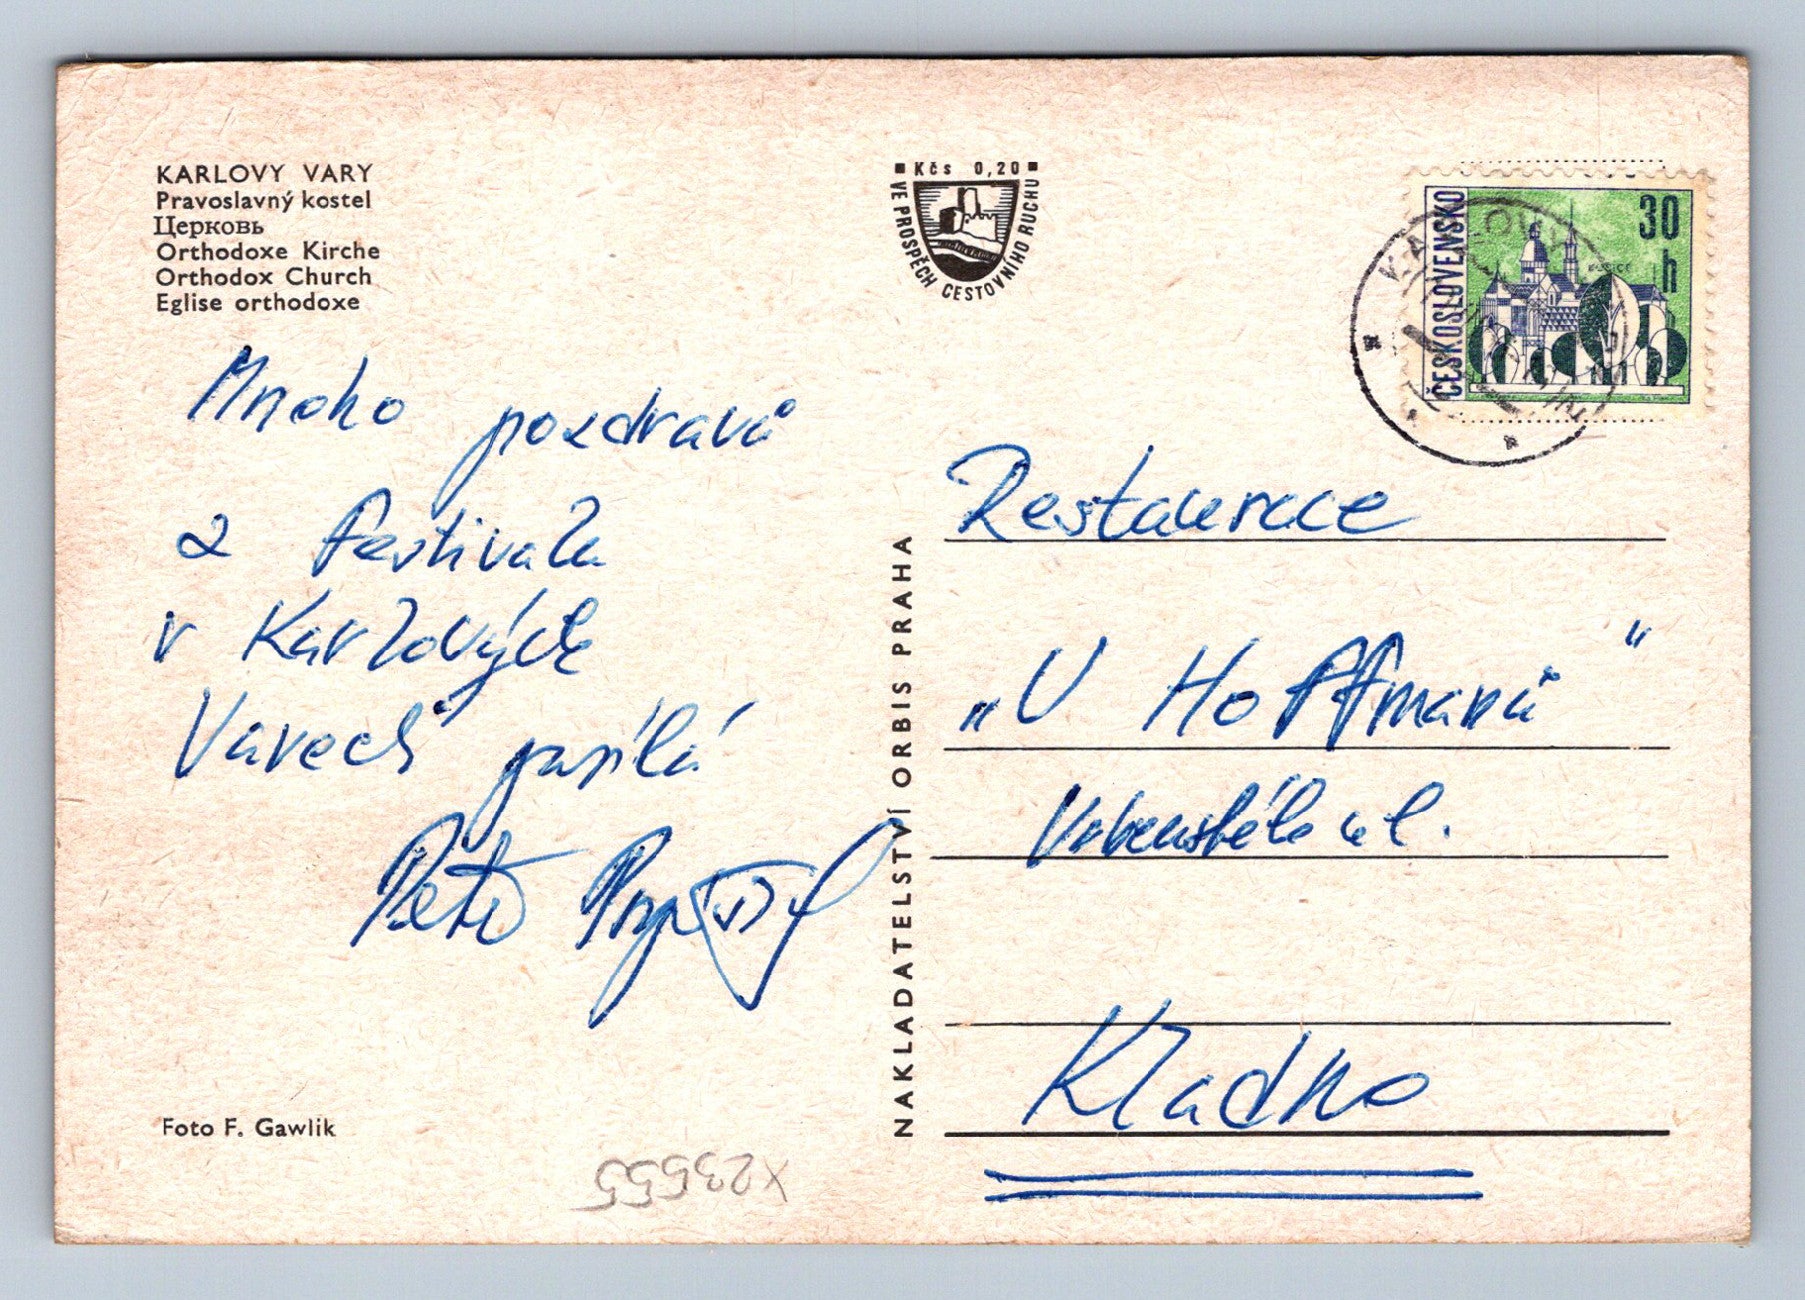 KARLOVY VARY
Pravoslavný kostel
Церковь
Orthodoxe Kirche
Orthodox Church
Eglise orthodoxe
Kčs 0,20
VE PROSPĚCH CESTOVNÍHO RUCHU
ČESKOSLOVENSKO
30
h
Mnoho pozdravů
z festivalu
v Karlových
Varech posílá
Petr
NAKLADATELSTVÍ ORBIS PRAHA
Restaurace
„U Hoffmanů“
ul.
Kladno
Foto F. Gawlik
X23555